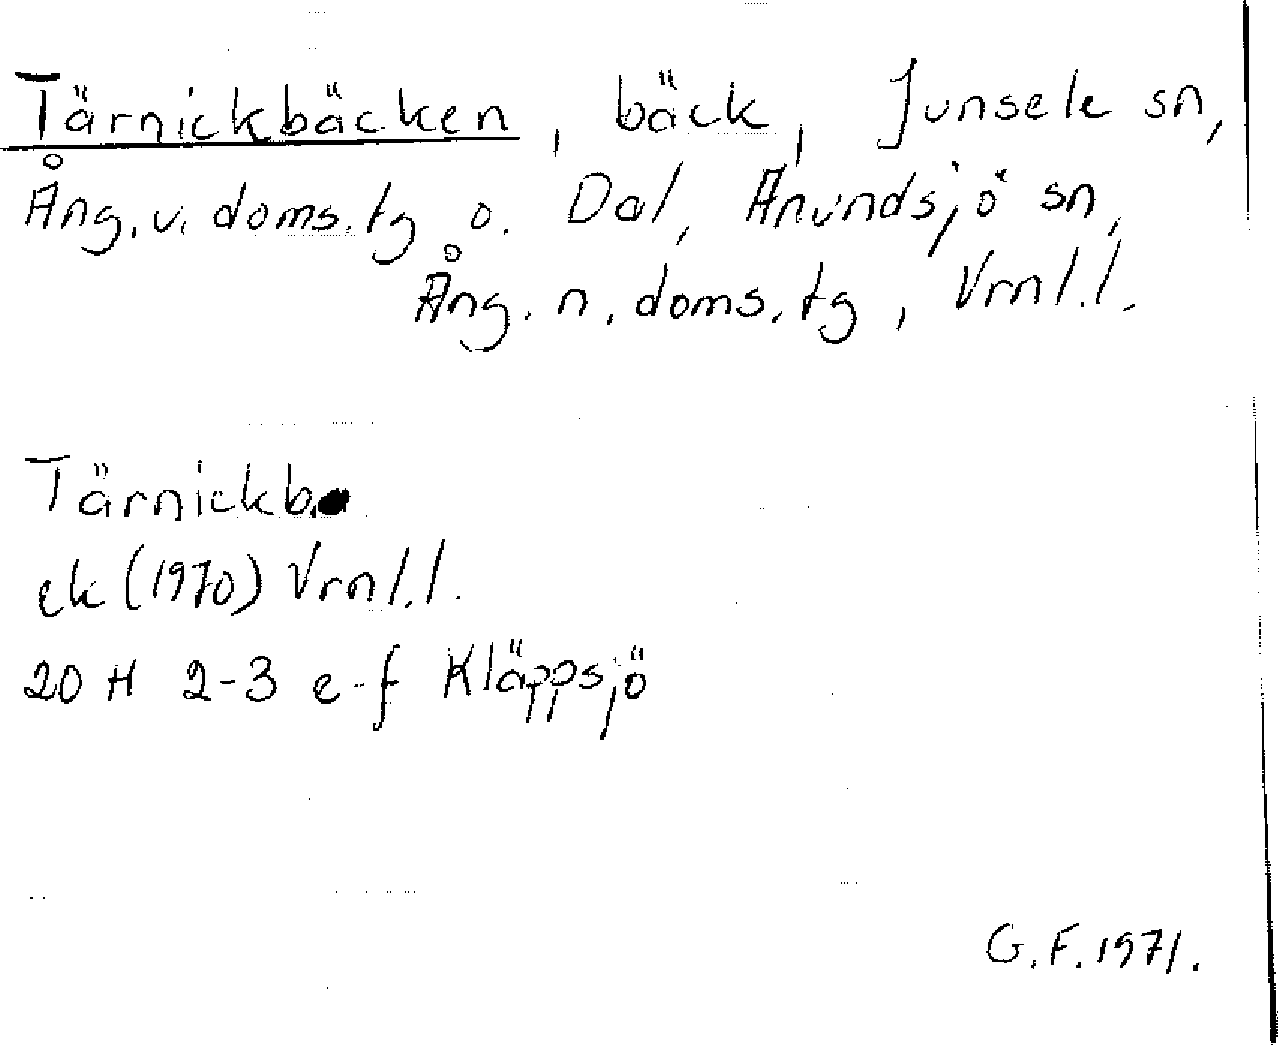 Tärnickbäcken, bäck, Junsele sn,
Ång. v. doms. tg o. Dal, Anundsjö sn,
Ång. n. doms. tg, Vrnl.l.
Tärnickb.
ek (1970) Vrnl.l.
20 H 2-3 e-f Kläppsjö
G.F. 1971.